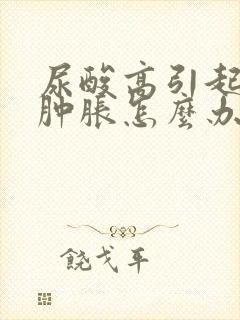 尿酸高引起
肿胀怎麼办
饶戈平